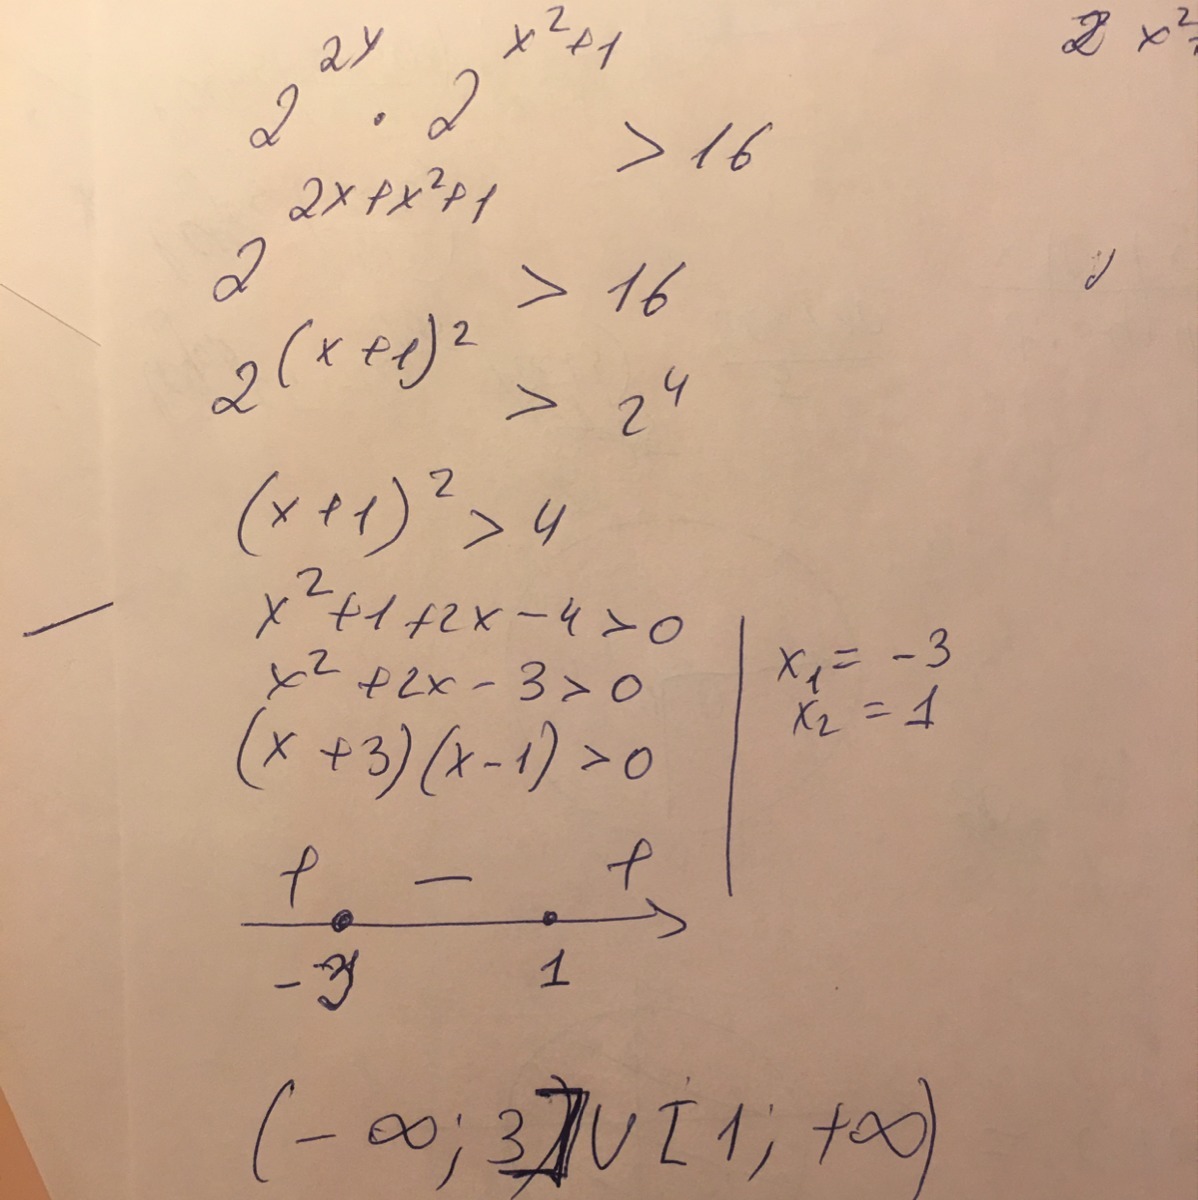 2^{2x} · 2^{x^2+1} > 16
2 x^2
2^{2x+x^2+1} > 16
2^{(x+1)^2} > 2^4
(x+1)^2 > 4
x^2+1+2x-4>0
x^2+2x-3>0
(x+3)(x-1)>0
x_1 = -3
x_2 = 1
+ - +
-3 1
(-∞; 3] ∪ [1; +∞)